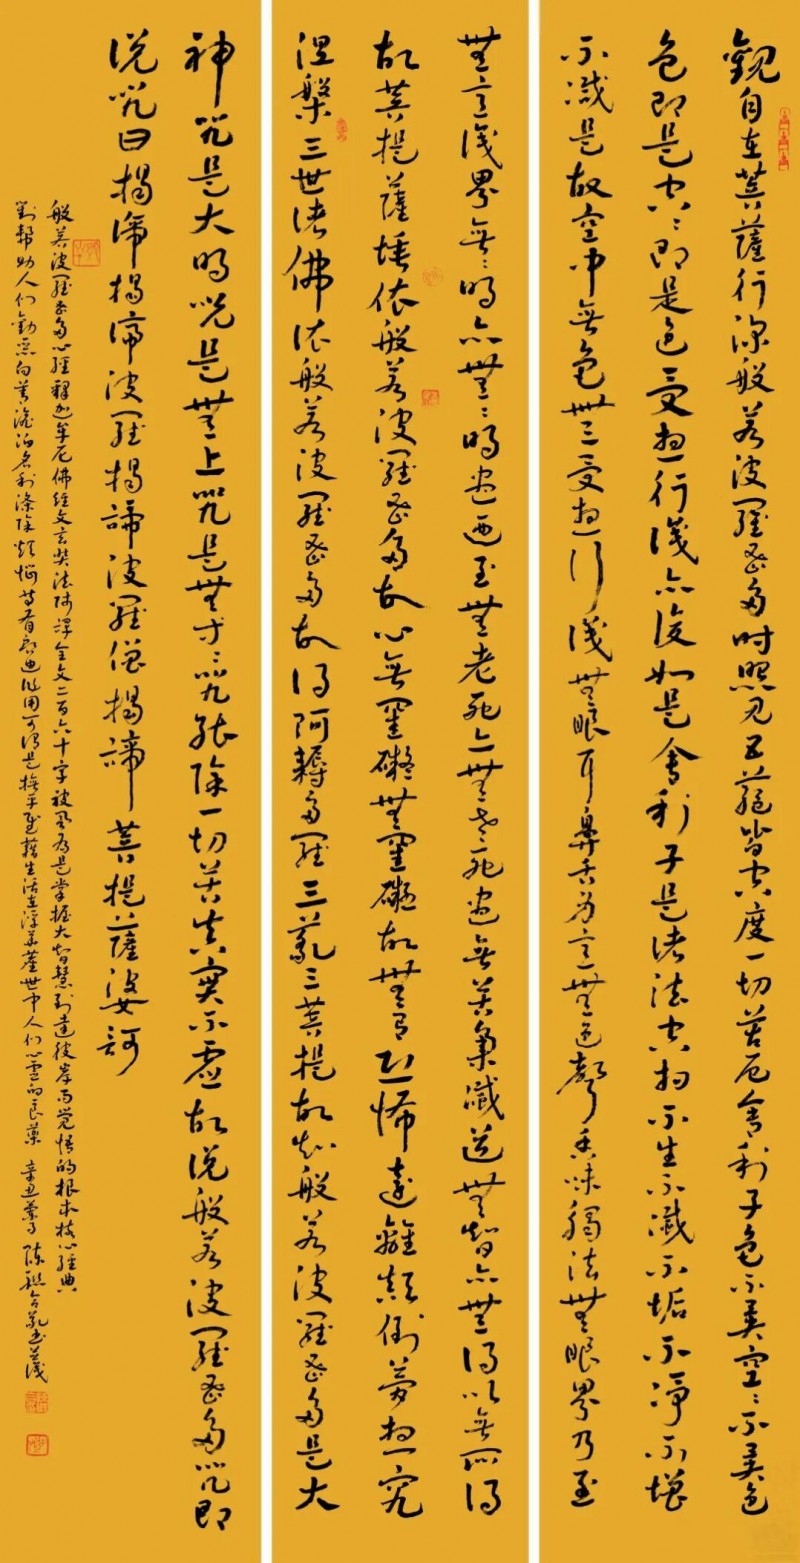 觀自在菩薩行深般若波羅蜜多時照見五蘊皆空度一切苦厄舍利子色不異空〻不異色
色即是空〻即是色受想行識亦復如是舍利子是諸法空相不生不滅不垢不淨不增
不減是故空中無色無受想行識無眼耳鼻舌身意無色聲香味觸法無眼界乃至
無意識界無〻明亦無〻明盡乃至無老死亦無老死盡無苦集滅道無智亦無得以無所得
故菩提薩埵依般若波羅蜜多故心無罣礙無罣礙故無有恐怖遠離顛倒夢想究
涅槃三世諸佛依般若波羅蜜多故得阿耨多羅三藐三菩提故知般若波羅蜜多是大
神咒是大明咒是無上咒是無等〻咒能除一切苦真實不虛故說般若波羅蜜多咒即
說咒曰揭諦揭諦波羅揭諦波羅僧揭諦菩提薩婆訶
般若波羅蜜多心經釋迦牟尼佛經文玄奘法師譯全文二百六十字被為是掌握大智慧到達彼岸而覺悟的根本核心經典
對幫助人们勸惡向善淡泊名利滌除煩惱等有啟迪作用可謂是撫平生活在浮華塵世中人们心靈的良藥 辛丑 陈書並識